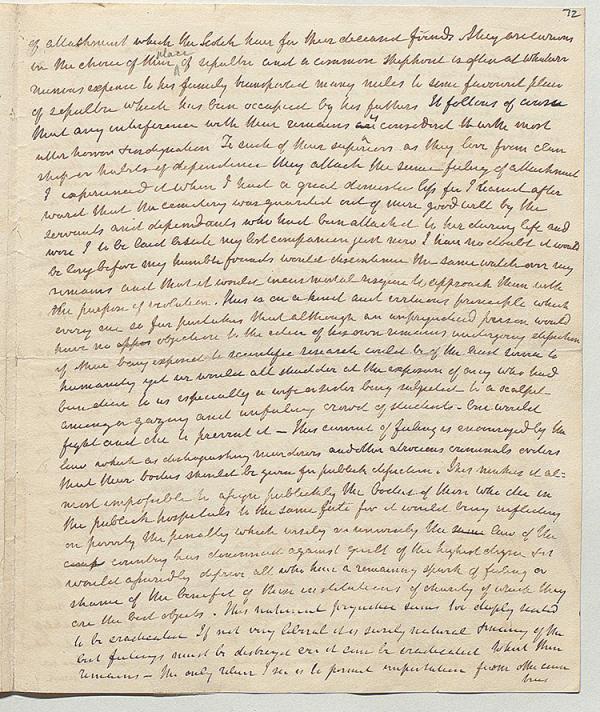 72
of attachment which the Scotch have for their deceased friends. They are curious
in the choice of their place of sepulture and a common shepherd is often at whatever
ruinous expense to his family transported many miles to some favourite place
of sepulture which has been occupied by his fathers. It follows of course
that any interference with their remains is considered with most
utter horror & indignation. To such of their superiors as they love from clan
ship or habits of dependance they attach the same feeling of attachment
I experienced it when I had a great domestic loss for I learnd after
ward that the cemetery was guarded out of mere good will by the
servants and dependants who had been attached to her during life and
were I to be laid beside my lost companion just now I have no doubt it would
be long before my humble friends would discontinue the same watch over my
remains and that it would incur mortal risque to approach them with
the purpose of violation. This is on a kind and virtuous principle which
every one so far partakes that although an unprejudiced person would
have no objection to the idea of his own remains undergoing dissection
if their being exposed to scientific research could be of the least service to
humanity yet we would all shudder at the exposure of any who had
been dear to us especially a wife or sister being subjected to a scalpel
among a gazing and unfeeling crowd of students. One would
fight and die to prevent it - This current of feeling is encouraged by the
law which as distinguishing murderers and other atrocious criminals orders
that their bodies should be given for publick dissection. This makes it al=
most impossible to assign publickly the bodies of those who die in
the publick hospitals to the same fate for it would be inflicting
on poverty the penalty which wisely or unwisely the law of the
country has denounced against guilt of the highest degree & it
would assuredly deprive all who have a remaining spark of feeling or
shame of the benefit of those institutions of charity of which they
are the best objects. This natural prejudice seems too deeply rooted
to be eradicated. If not very liberal it is surely natural & many of the
best feelings must be destroyd ere it can be eradicated. What then
remains - The only relief I see is to permit importation from other coun
tries